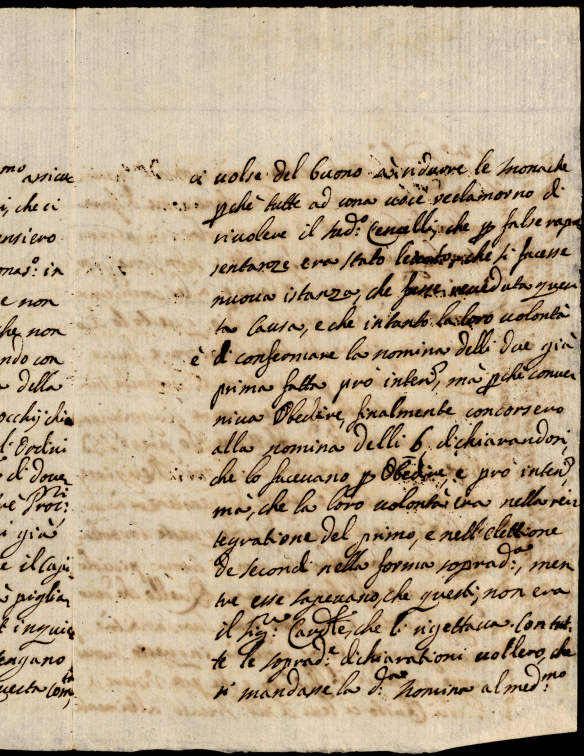 mo assicu
ri, che ci
ensiero
onas.o: in
e non
che non
ndo con
a della
occhij chi
d'Ordini
di doue
rè Pro:ri
i già
e il Capi
à piglia
t inquie
tengano
uesta Com.tà
ci uolse del buono à ridurre le Monache
pchè tutte ad una uoce reclamorno di
riuolere il sud.o Cencelli, che p false rapp
sentanze era stato leuato, chè si facesse
nuoua istanza, che fusse ueduta ques
ta Causa, e che intanto la loro uolontà
è di confermare la nomina delli due già
prima fatta prò inter, mà pchè conue
niua Obedire, finalmente concorsero
alla nomina delli 6, dichiarandosi,
che lo faceuano p Obedire, e prò inter,
mà, che la loro uolontà era nella rein
tegratione del primo, e nell'elettione
de secondi nella forma soprad.a, men
tre esse sapeuano, che questi, non era
il Sig.r Card.le, che li rigettaua. Con tut
te le soprad.e dichiarationi uollero, che
si mandasse la d.a Nomina al med.mo